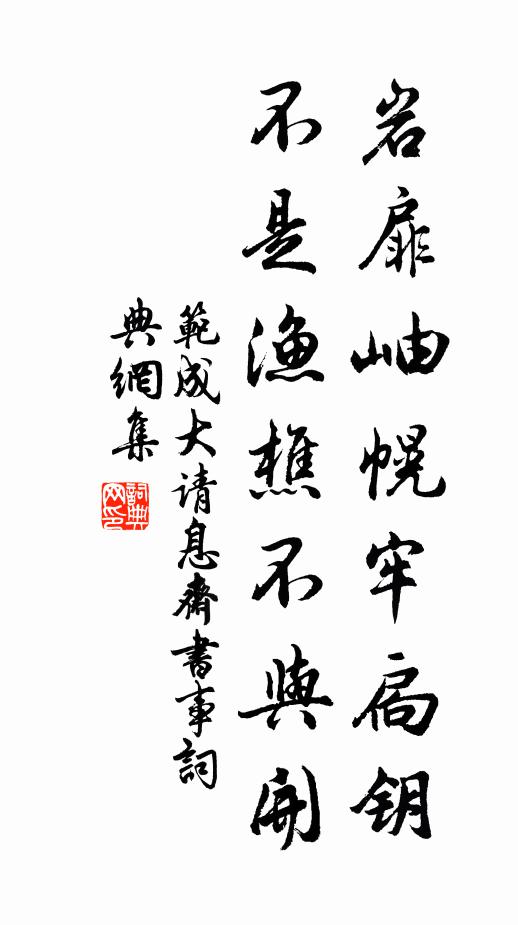 岩扉岫幌牢扃钥
不是渔樵不與開
範成大请息齋書事詞
典網集
詞典
网印